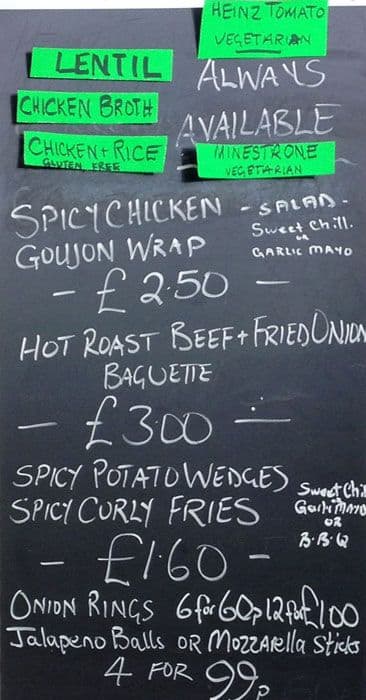 HEINZ TOMATO
VEGETARIAN
LENTIL
ALWAYS
CHICKEN BROTH
AVAILABLE
CHICKEN + RICE
GLUTEN FREE
MINESTRONE
VEGETARIAN
SPICY CHICKEN - SALAD -
GOUJON WRAP
Sweet Chill.
OR
GARLIC MAYO
- £2.50 -
HOT ROAST BEEF + FRIED ONION
BAGUETTE
- £3.00 -
SPICY POTATO WEDGES
SPICY CURLY FRIES
Sweet Chi
OR
Garlic MAYO
OR
B.B.Q
- £1.60 -
ONION RINGS 6 for 60p 12 for £1.00
Jalapeno Balls OR MOZZARElla Sticks
4 FOR 99p